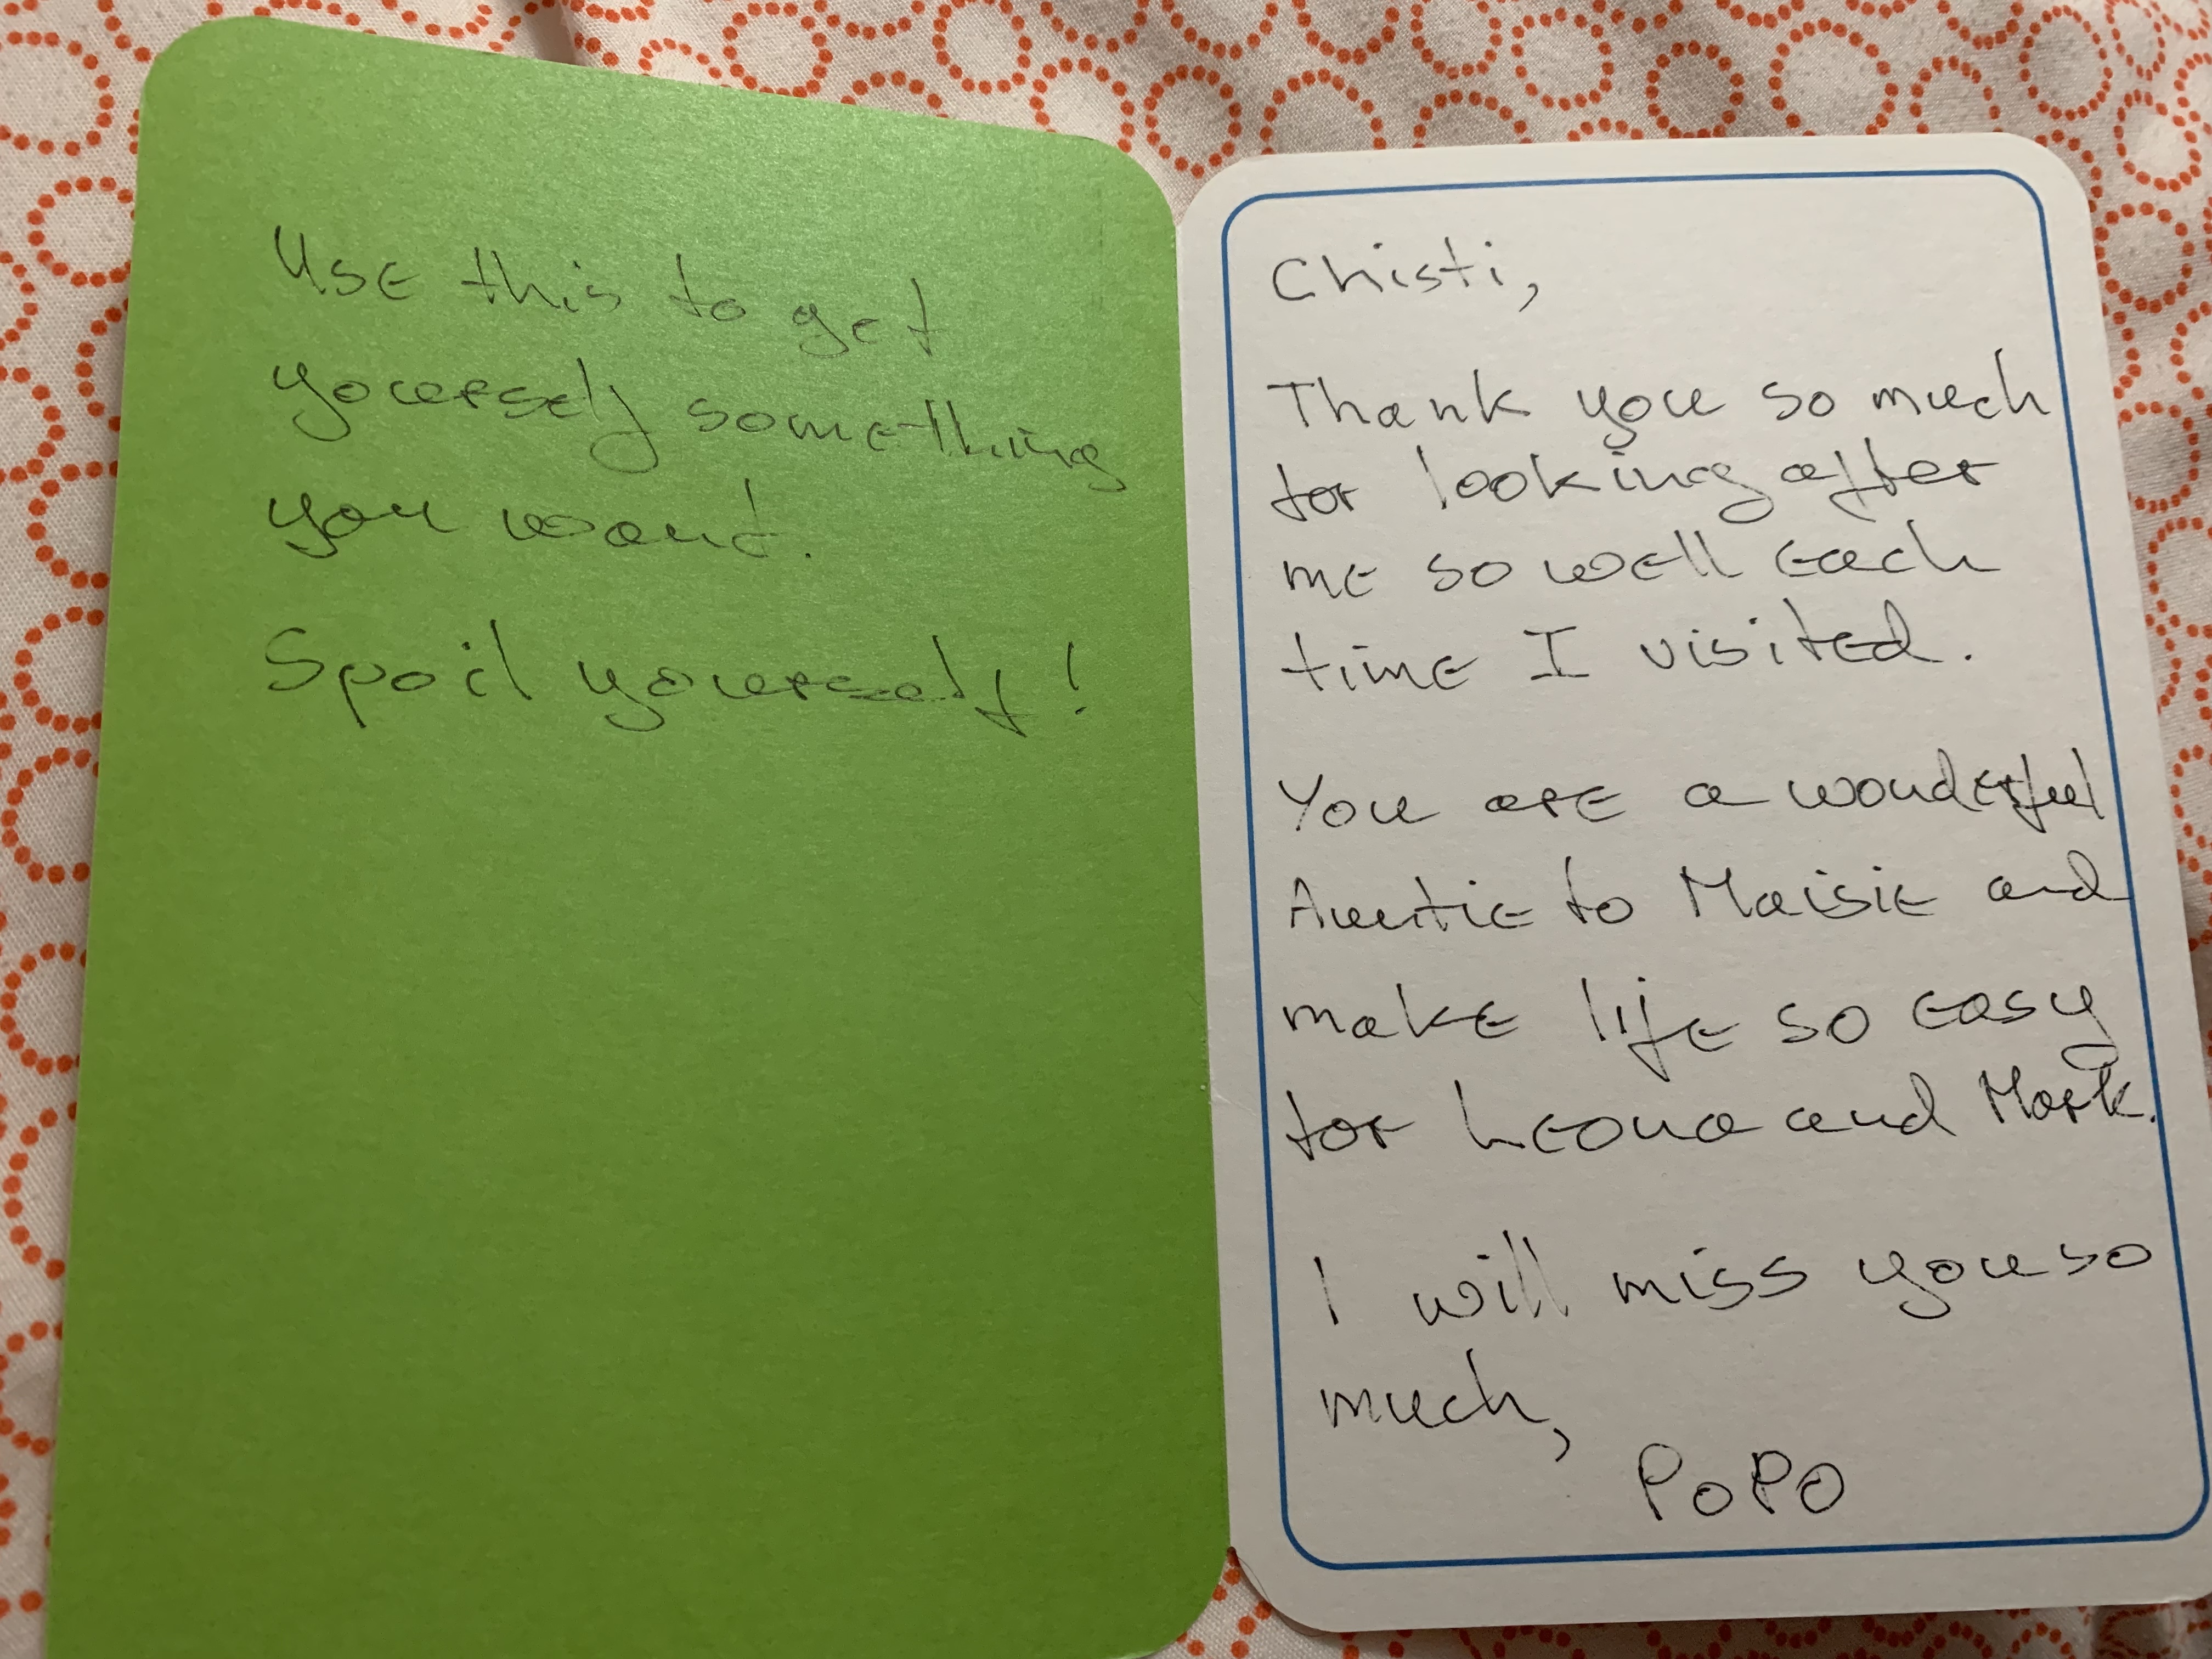 Use this to get
yourself something
you want.
Spoil yourself!
Chisti,
Thank you so much
for looking after
me so well each
time I visited.
You are a wonderful
Auntie to Maisie and
make life so easy
for Leona and Mark.
I will miss you so
much,
POPO